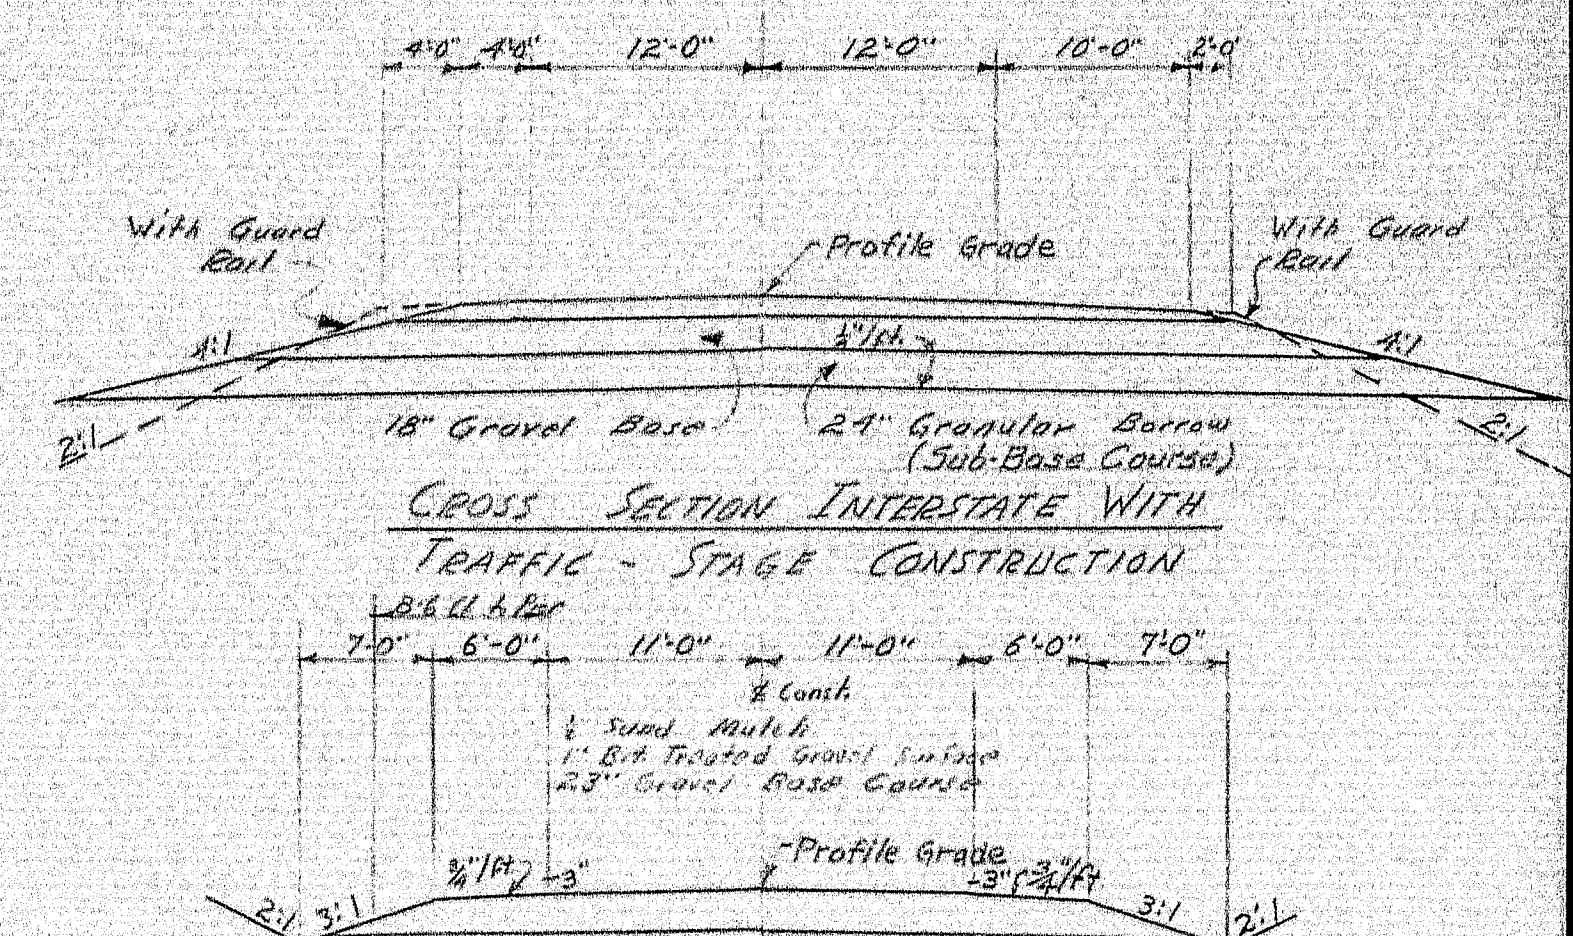 4'-0" 4'-0" 12'-0" 12'-0" 10'-0" 2'-0"
With Guard
Rail
Profile Grade
With Guard
Rail
4:1
/ft.
4:1
2:1
18" Gravel Base
24" Granular Borrow
(Sub-Base Course)
2:1
CROSS SECTION INTERSTATE WITH
TRAFFIC - STAGE CONSTRUCTION
7'-0" 6'-0" 11'-0" 11'-0" 6'-0" 7'-0"
Const.
Mulch
1" Bit. Treated Gravel Surface
23" Gravel Base Course
Profile Grade
3/4"/ft -3"
-3" 3/4"/ft
2:1 3:1
3:1 2:1